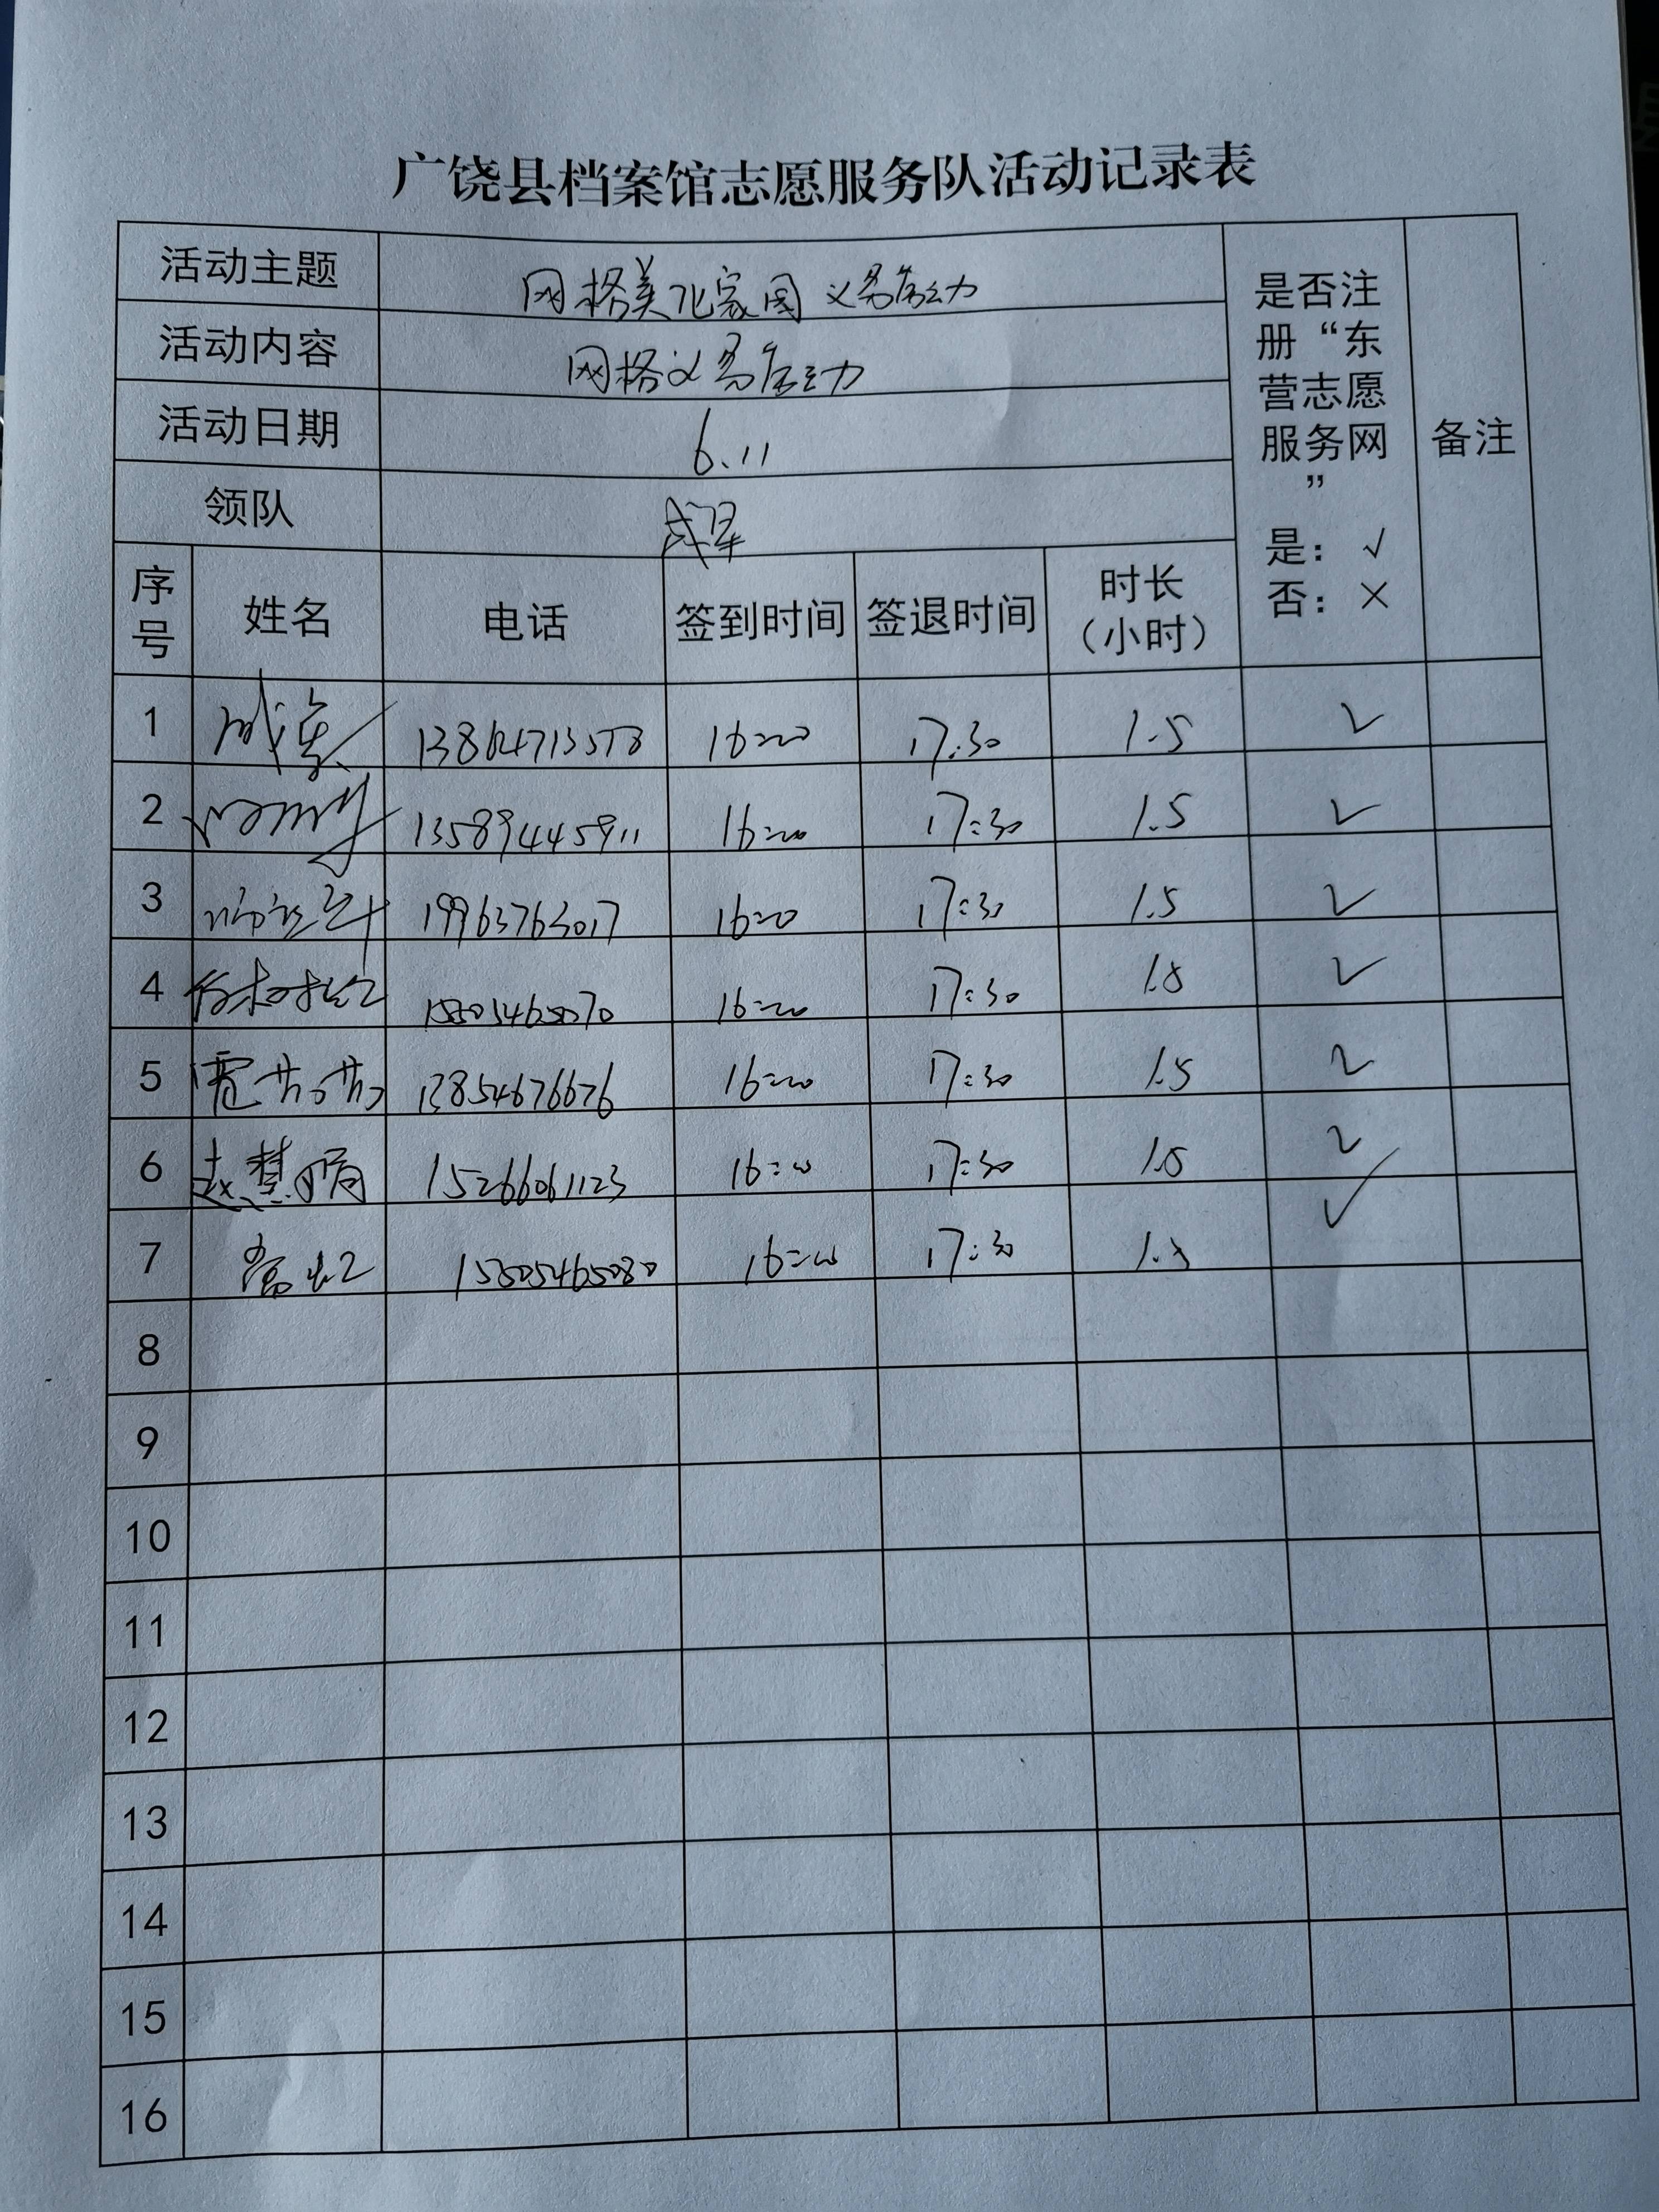 广饶县档案馆志愿服务队活动记录表
活动主题 网格美化家园 义务劳动
活动内容 网格义务劳动
活动日期 6.11
领队
是否注册“东营志愿服务网”
是：√
否：×
备注
序号 姓名 电话 签到时间 签退时间 时长（小时）
1 17:30 1.5 ✓
2 13589445911 16:00 17:30 1.5 ✓
3 19963763017 16:00 17:30 1.5 ✓
4 16:00 17:30 1.5 ✓
5 13854676676 16:00 17:30 1.5 ✓
6 赵慧娟 15266061123 16:00 17:30 1.5 ✓
7 15805465080 16:00 17:30 1.5 ✓
8
9
10
11
12
13
14
15
16